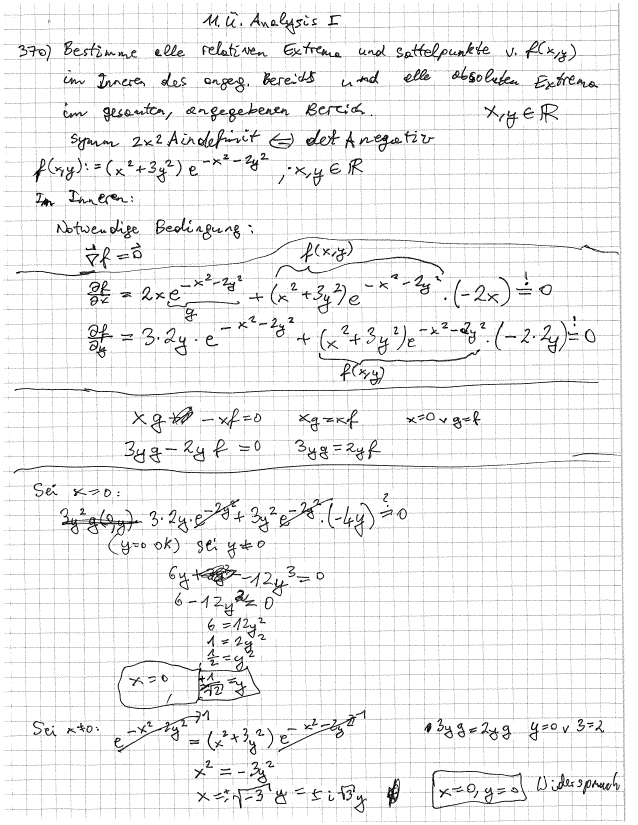 11. Ü. Analysis I
370) Bestimme alle relativen Extrema und Sattelpunkte v. f(x,y)
im Inneren des angeg. Bereichs und alle absoluten Extrema
im gesamten, angegebenen Bereich. x,y ∈ ℝ
Symm 2x2 A indefinit ⇔ det A negativ
f(x,y) := (x² + 3y²) e^(-x²-2y²) , x,y ∈ ℝ
Im Inneren:
Notwendige Bedingung:
∇f = 0
f(x,y)
∂f/∂x = 2x e^(-x²-2y²) + (x² + 3y²) e^(-x²-2y²) · (-2x) =! 0
g
∂f/∂y = 3·2y · e^(-x²-2y²) + (x² + 3y²) e^(-x²-2y²) · (-2·2y) =! 0
f(x,y)
xg - xf = 0 xg = xf x=0 ∨ g=f
3yg - 2yf = 0 3yg = 2yf
Sei x=0:
3y²g(0,y) 3·2y·e^(-2y²) + 3y² e^(-2y²) · (-4y) =? 0
(y=0 ok) sei y≠0
6y - 12y³ = 0
6 - 12y² = 0
6 = 12y²
1 = 2y²
1/2 = y²
x=0, ±1/√2 = y
Sei x≠0: e^(-x²-2y²) = (x² + 3y²) e^(-x²-2y²) 3yg = 2yg y=0 ∨ 3=2
x² = -3y²
x=0, y=0 Widerspruch